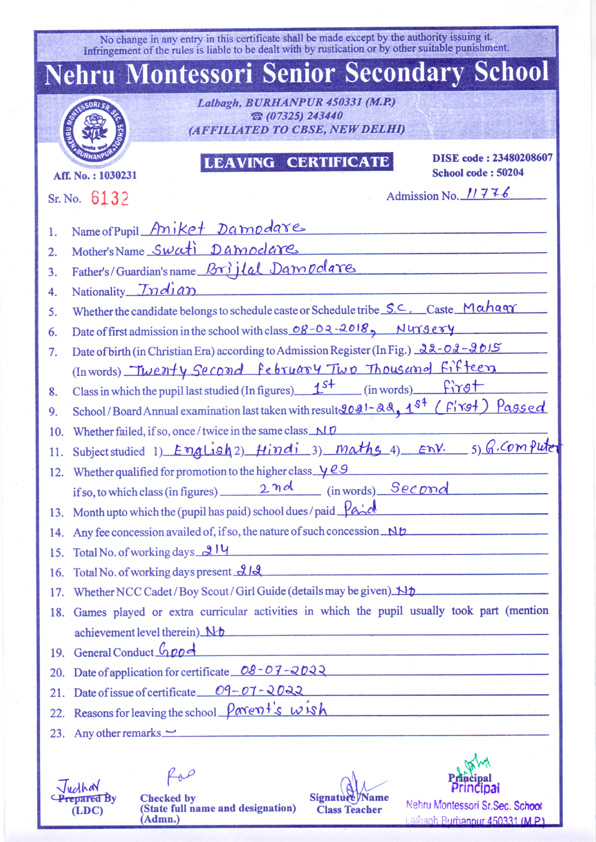 No change in any entry in this certificate shall be made except by the authority issuing it.
Infringement of the rules is liable to be dealt with by rustication or by other suitable punishment.
Nehru Montessori Senior Secondary School
Lalbagh, BURHANPUR 450331 (M.P.)
☎ (07325) 243440
(AFFILIATED TO CBSE, NEW DELHI)
NEHRU MONTESSORI SR. SEC. SCHOOL
BURHANPUR
LEAVING CERTIFICATE
DISE code : 23480208607
School code : 50204
Aff. No. : 1030231
Sr. No. 6132
Admission No. 11776
1. Name of Pupil Aniket Damodare
2. Mother's Name Swati Damodare
3. Father's / Guardian's name Brijlal Damodare
4. Nationality Indian
5. Whether the candidate belongs to schedule caste or Schedule tribe S.C. Caste Mahaar
6. Date of first admission in the school with class 08-02-2018, Nursery
7. Date of birth (in Christian Era) according to Admission Register (In Fig.) 22-02-2015
(In words) Twenty Second February Two Thousand Fifteen
8. Class in which the pupil last studied (In figures) 1st (in words) first
9. School / Board Annual examination last taken with result 2021-22, 1st (First) Passed
10. Whether failed, if so, once / twice in the same class NO
11. Subject studied 1) English 2) Hindi 3) Maths 4) ENV. 5) G.Computer
12. Whether qualified for promotion to the higher class yes
if so, to which class (in figures) 2nd (in words) Second
13. Month upto which the (pupil has paid) school dues / paid Paid
14. Any fee concession availed of, if so, the nature of such concession No
15. Total No. of working days 214
16. Total No. of working days present 212
17. Whether NCC Cadet / Boy Scout / Girl Guide (details may be given) No
18. Games played or extra curricular activities in which the pupil usually took part (mention
achievement level therein) No
19. General Conduct Good
20. Date of application for certificate 08-07-2022
21. Date of issue of certificate 09-07-2022
22. Reasons for leaving the school Parent's wish
23. Any other remarks –
Prepared By
(LDC)
Checked by
(State full name and designation)
(Admn.)
Signature/Name
Class Teacher
Principal
Principal
Nehru Montessori Sr.Sec. School
Lalbagh Burhanpur 450331 (M.P.)